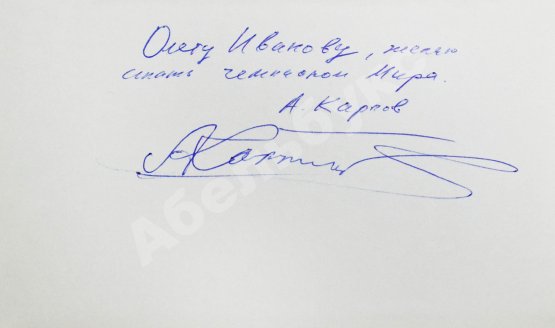 Олегу Иванову, желаю
стать чемпионом Мира.
А. Карпов
АКарпов
Абельбукс